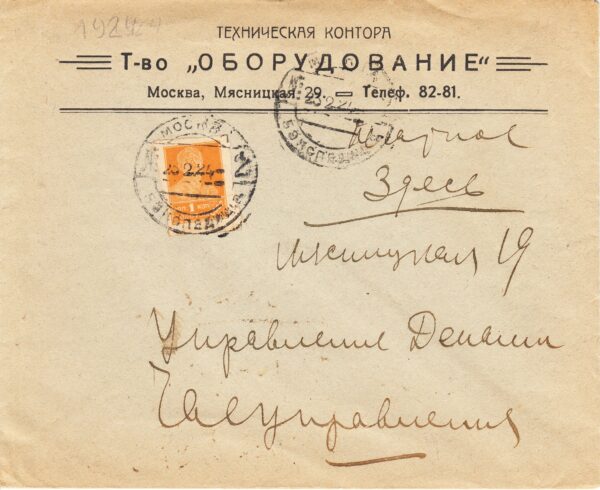 1924
ТЕХНИЧЕСКАЯ КОНТОРА
Т-во „ОБОРУДОВАНИЕ“
Москва, Мясницкая 29. — Телеф. 82-81.
МОСКВА
23.2.24
23.2.24
1
Здесь
Мясницкая 19
Управление Делами
Управления